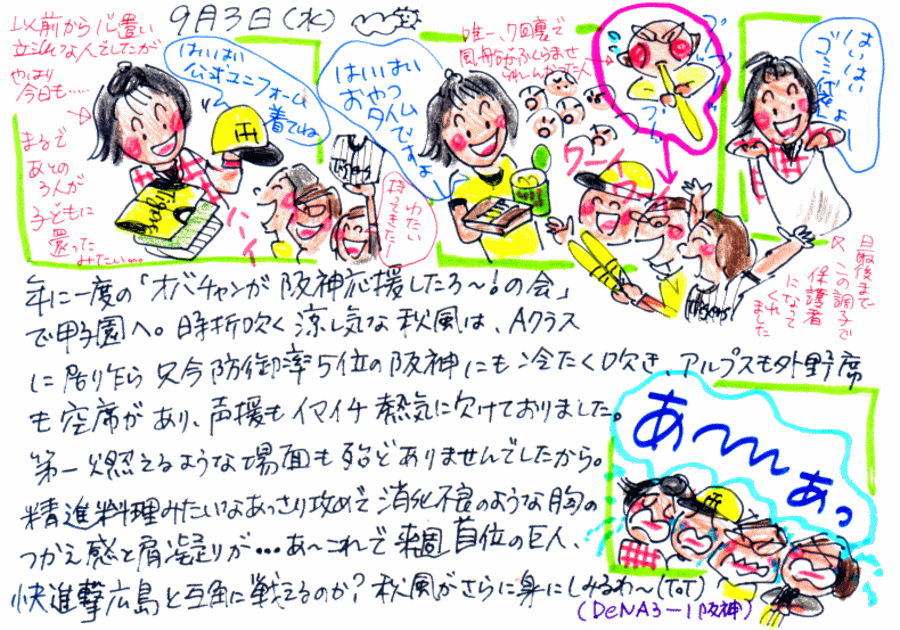 9月3日(水)
以前から心置い
立派な人でしたが
やはり
今日も……
まるで
あとの
3人が
子どもに
還った
みたい…
はいはい
公式ユニフォーム
着てね
TH
Tigers
ハーイ
はいはい
おやつ
タイムですよ
Tigers
わたい
持ってきた
唯一、7回裏で
風船ふくらませ
られんかった人
ワーイ
ワーイ
はいはい
ゴミ袋よー
最後まで
この調子で
保護者
になって
くれ
ました
Tigers
年に一度の「オバチャンが阪神応援したろ〜!の会」
で甲子園へ。時折吹く涼し気な秋風は、Aクラス
に居り乍ら只今防御率5位の阪神にも冷たく吹き、アルプスも外野席
も空席があり、声援もイマイチ熱気に欠けておりました。
第一燃えるような場面も殆どありませんでしたから。
精進料理みたいなあっさり攻めで消化不良のような胸の
つかえ感と肩凝りが…あ〜これで来週首位の巨人、
快進撃広島と互角に戦えるのか?秋風がさらに身にしみるわ〜(ToT)
(DeNA3ー1阪神)
あ〜〜あっ
TH